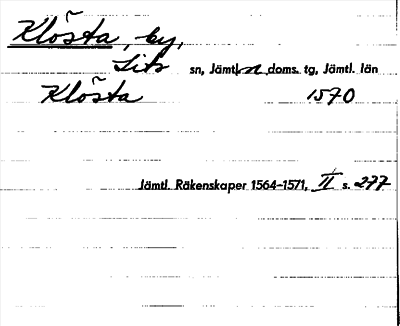 Klösta, by,
Lits sn, Jämtl. n. doms. tg, Jämtl. län
Klösta 1570
Jämtl. Räkenskaper 1564-1571, II s. 277